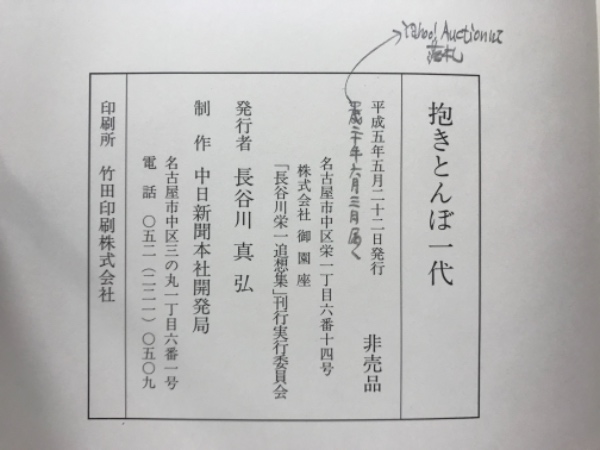 Yahoo! Auctionにて
落札
抱きとんぼ一代
平成五年五月二十二日発行　非売品
平成二十年六月三日届く
名古屋市中区栄一丁目六番十四号
株式会社 御園座
「長谷川栄一追想集」刊行実行委員会
発行者 長谷川 真弘
制作 中日新聞本社開発局
名古屋市中区三の丸一丁目六番一号
電話 〇五二(二二一)〇五〇九
印刷所 竹田印刷株式会社